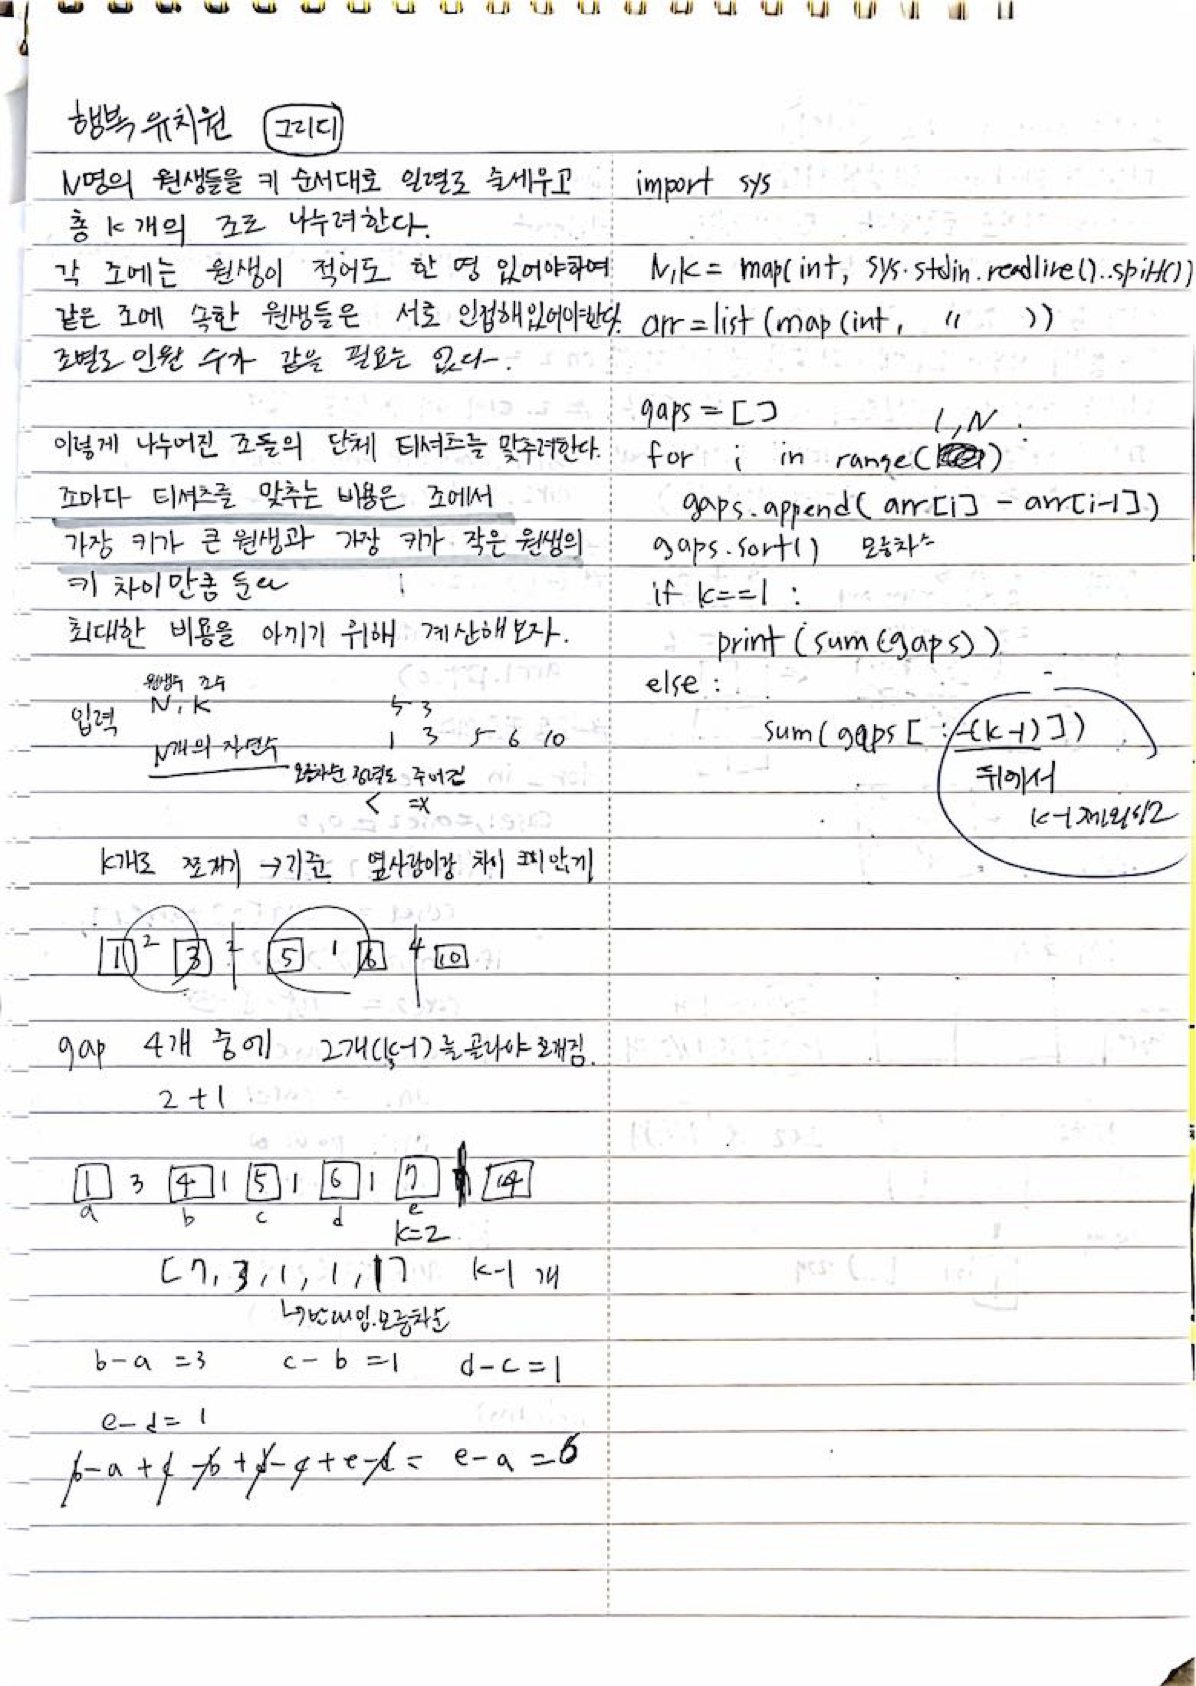 행복 유치원 그리디
N명의 원생들을 키 순서대로 일렬로 줄세우고
총 K개의 조로 나누려한다.
각 조에는 원생이 적어도 한 명 있어야하며
같은 조에 속한 원생들은 서로 인접해있어야한다.
조별로 인원 수가 같을 필요는 없다.
이렇게 나누어진 조들의 단체 티셔츠를 맞추려한다.
조마다 티셔츠를 맞추는 비용은 조에서
가장 키가 큰 원생과 가장 키가 작은 원생의
키 차이만큼 든다
최대한 비용을 아끼기 위해 계산해보자.
원생수 조수
입력 N, K 5 3
N개의 자연수 1 3 5 6 10
오름차순 정렬도 주어진
< =x
K개로 쪼개기 → 기준 옆사람이랑 차이 크지 않게
1 2 3 2 5 1 6 4 10
gap 4개 중에 2개(K-1)를 골라야 쪼개짐.
2+1
1 3 4 1 5 1 6 1 7 14
a b c d e
k=2
[7, 3, 1, 1, 1] k-1 개
↳ 반대임. 오름차순
b-a =3 c-b =1 d-c =1
e-d = 1
b-a + c-b + d-c + e-d = e-a = 6
import sys
N,K = map(int, sys.stdin.readline().split())
arr = list(map(int, " ))
gaps = []
1, N
for i in range( )
gaps.append(arr[i] - arr[i-1])
gaps.sort() 오름차순
if k==1 :
print(sum(gaps))
else :
sum(gaps[ : -(k-1)])
뒤에서
k-1 제외하고